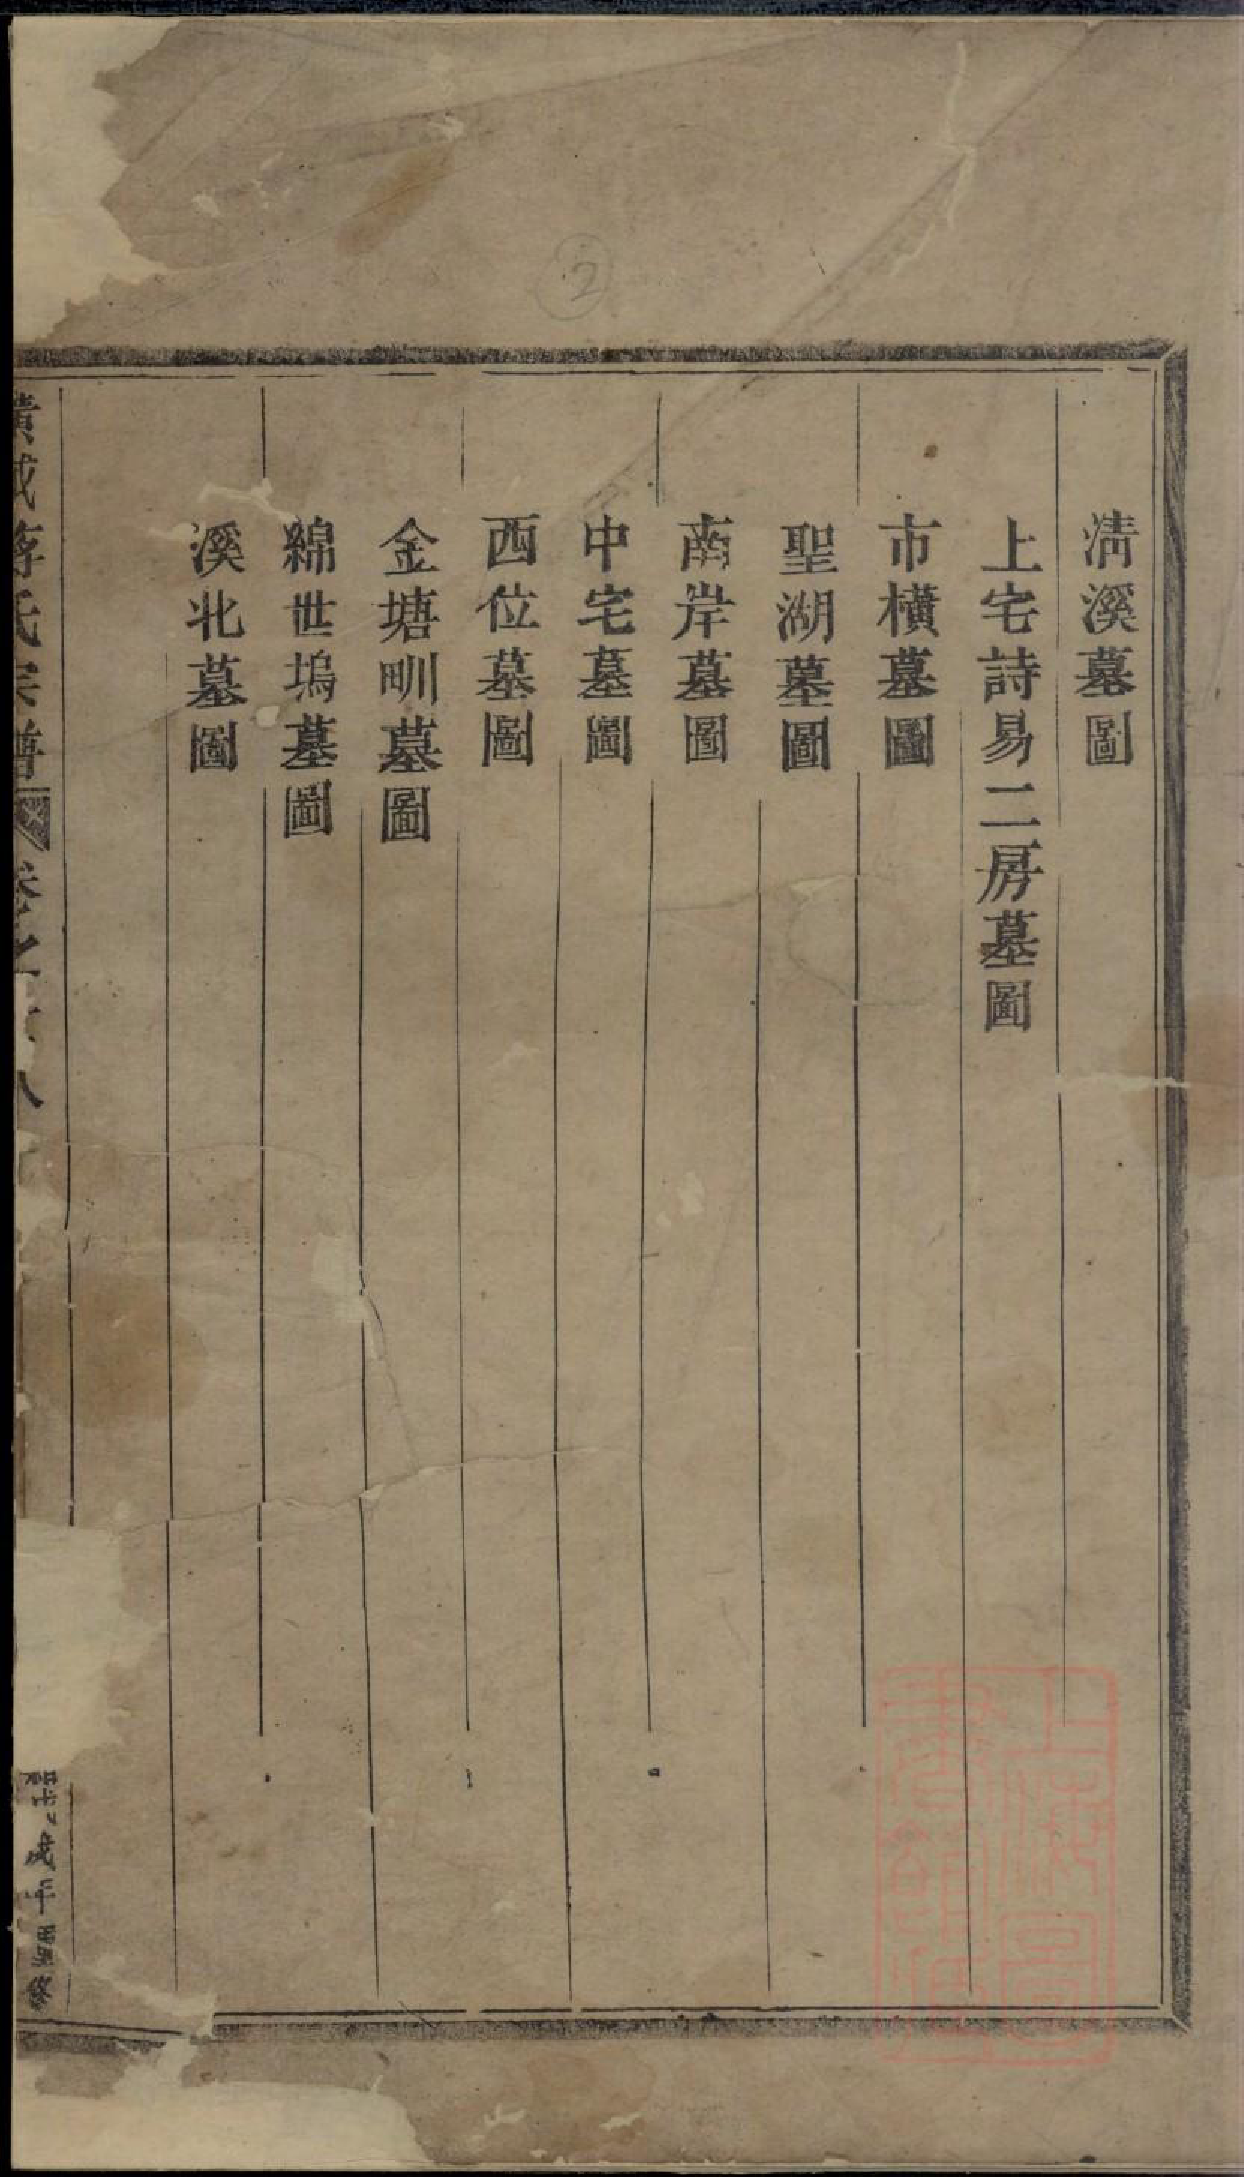 淸溪墓圖
上宅詩易二房墓圖
市橫墓圖
聖湖墓圖
南岸墓圖
中宅墓圖
西位墓圖
金塘甽墓圖
綿世塢墓圖
溪北墓圖
蔣氏宗譜
卷之
八
年重修
上海圖書館藏
2